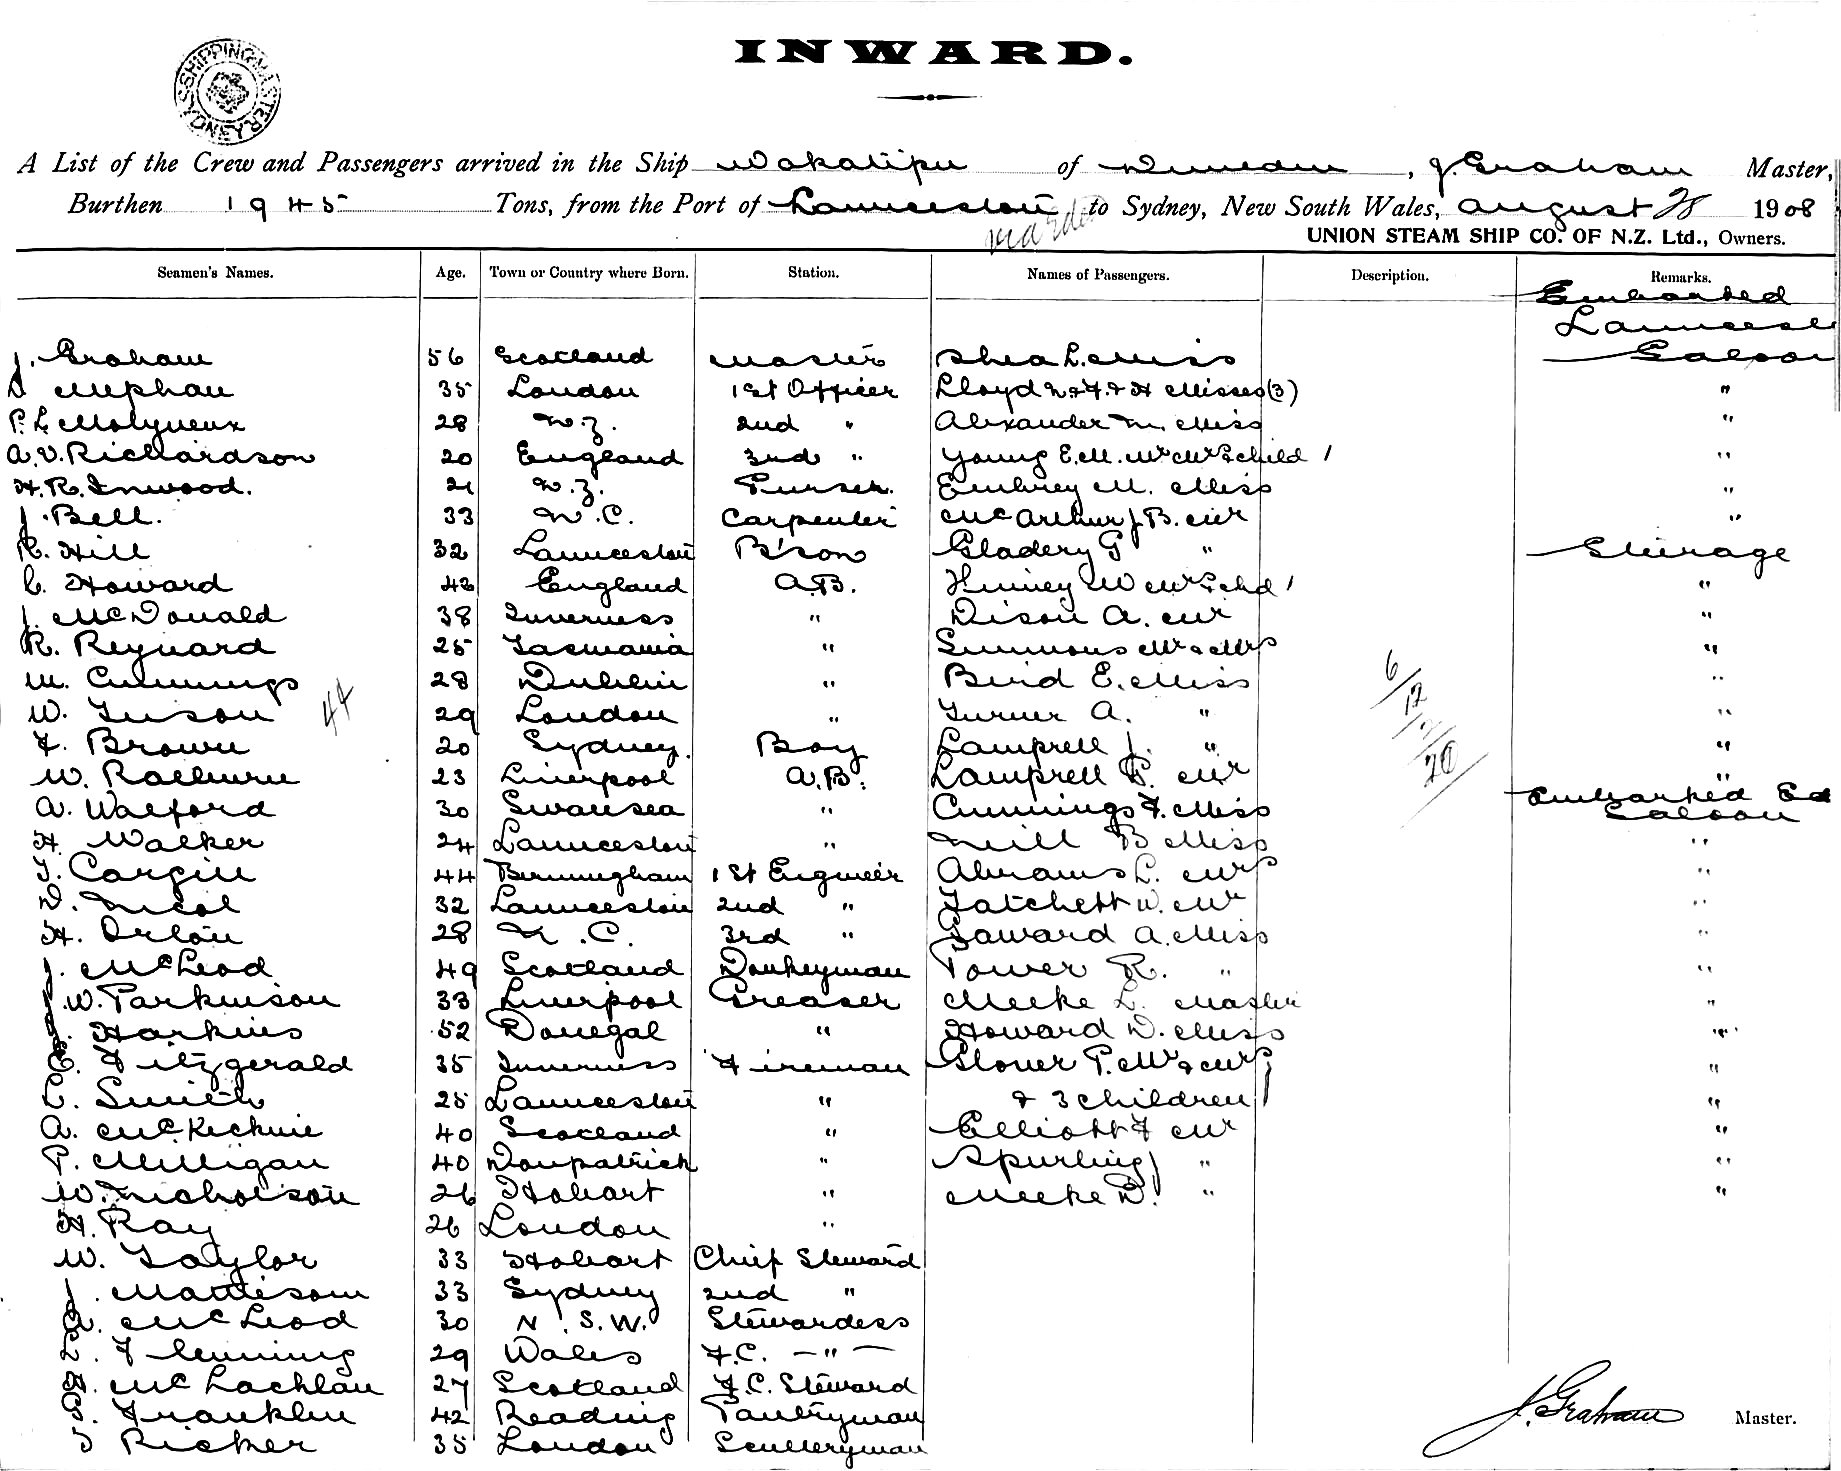 INWARD.
SHIPPING MASTERS SYDNEY
A List of the Crew and Passengers arrived in the Ship Wakatipu of Dunedin, J. Graham Master,
Burthen 1945 Tons, from the Port of Launceston to Sydney, New South Wales, August 28 1908
UNION STEAM SHIP CO. OF N.Z. Ltd., Owners.
Seamen's Names. Age. Town or Country where Born. Station. Names of Passengers. Description. Remarks.
Embarked
J. Graham 56 Scotland Master Shea L. Miss Saloon
Mephan 35 London 1st Officer Lloyd Misses (3) "
P. L. Molyneux 28 N.Z. 2nd " Alexander M. Miss "
A. V. Richardson 20 England 3rd " Young E. M. Mr Mrs & child 1 "
H. R. Inwood. 21 N.Z. Purser. Embrey M. Miss "
J. Bell. 33 N.C. Carpenter McArthur J. B. Mr "
R. Hill 32 Launceston B'son G " Steerage
C. Howard 42 England A.B. W Mrs & chd 1 "
J. McDonald 38 Inverness " A. Mr "
R. Reynard 25 Tasmania " Simmons Mr & Mrs "
M. Cummings 28 Dublin " Bird E. Miss "
W. Tuson 29 London " Turner A. " "
44
F. Brown 20 Sydney. Boy Lamprell J. " "
W. Raeburn 23 Liverpool A.B. Lamprell P. Mr "
6/12/2/20
A. Walford 30 Swansea " Cummings F. Miss Embarked Ed
Saloon
H. Walker 24 Launceston " Neill B Miss "
T. Cargill 44 Birmingham 1st Engineer Abrams L. Mrs "
D. Nicol 32 Launceston 2nd " Tatchett W. Mr "
H. Orton 28 N.C. 3rd " Gaward A. Miss "
J. McLeod 49 Scotland Donkeyman Power R. " "
J. W. Parkinson 33 Liverpool Greaser Meeke L. Master "
Harkins 52 Donegal " Howard D. Miss "
E. Fitzgerald 35 Inverness Fireman Glover P. Mr & Mrs "
C. Smith 25 Launceston " & 3 children "
A. McKechnie 40 Scotland " Elliott F Mr "
P. Milligan 40 Downpatrick " Spurling J " "
W. Nicholson 26 Hobart " Meeke D. " "
H. Ray 26 London "
W. Taylor 33 Hobart Chief Steward
J. Mattisom 33 Sydney 2nd "
A. McLeod 30 N.S.W. Stewardess
L. Flemming 29 Wales F.C. — " —
A. McLachlan 27 Scotland F.C. Steward
Franklin 42 Reading Pantryman
Ricker 35 London Sculleryman
J. Graham Master.